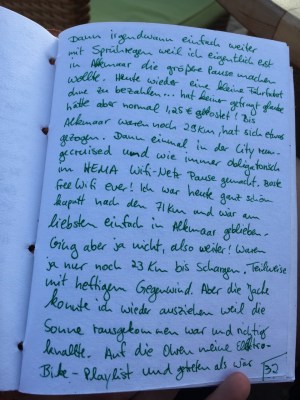 Dann irgendwann einfach weiter
mit Sprühregen weil ich eigentlich erst
in Alkmaar die größere Pause machen
wollte. Heute wieder eine kleine Fährfahrt
ohne zu bezahlen... hat keiner gefragt glaube
hätte aber normal 1,25€ gekostet! Bis
Alkmaar waren noch 29km, hat sich etwas
gezogen. Dann einmal in der City rum-
gecruised und wie immer obligatorisch
im HEMA Wifi-Netz Pause gemacht. Beste
Free Wifi ever! Ich war heute ganz schön
kaputt nach den 71km und wär am
liebsten einfach in Alkmaar geblieben.
Ging aber ja nicht, also weiter! Waren
ja nur noch 23km bis Schargen. Teilweise
mit heftigem Gegenwind. Aber die Jacke
konnte ich wieder ausziehen weil die
Sonne rausgekommen war und richtig
knallte. Auf die Ohren meine Elektro-
Bike-Playlist und getreten als wär
32